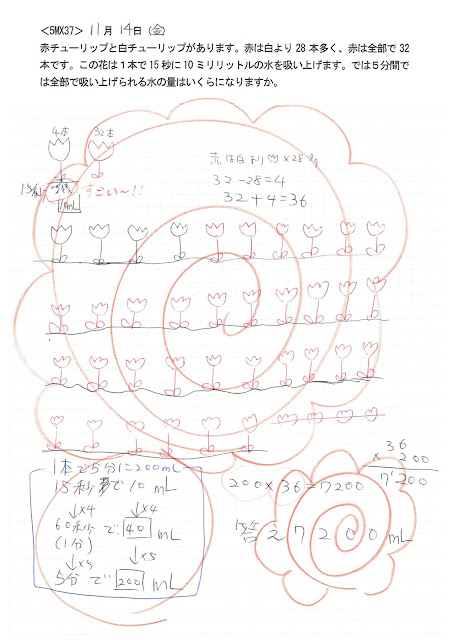 <5MX37> 11月 14日（金）
赤チューリップと白チューリップがあります。赤は白より28本多く、赤は全部で32
本です。この花は1本で15秒に10ミリリットルの水を吸い上げます。では5分間で
は全部で吸い上げられる水の量はいくらになりますか。
4本 32本
15秒
10mL
すごい〜!!
赤は白より
×28
32-28=4
32+4=36
1本で5分に200mL
15秒で10mL
↓×4 ↓×4
60秒で40mL
(1分)
↓×5 ↓×5
5分で200mL
200×36=7200
36
×200
7200
答え7200mL